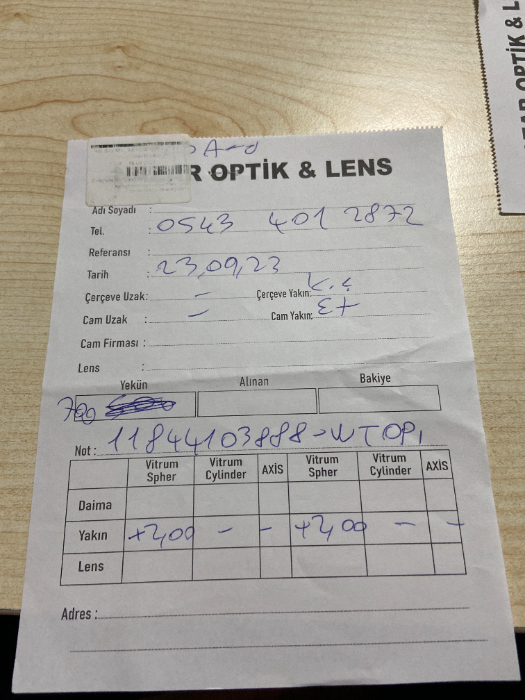 R OPTİK & LENS
Adı Soyadı :
Tel. : 0543 401 2872
Referansı :
Tarih : 23,09,23
Çerçeve Uzak: - Çerçeve Yakın: K.Ç
Cam Uzak : - Cam Yakın:
Cam Firması :
Lens :
Yekün Alınan Bakiye
700
Not : 11844103888-WTOP1
Vitrum Spher Vitrum Cylinder AXİS Vitrum Spher Vitrum Cylinder AXİS
Daima
Yakın +2,00 - - +2,00 - -
Lens
Adres :
OPTİK & L